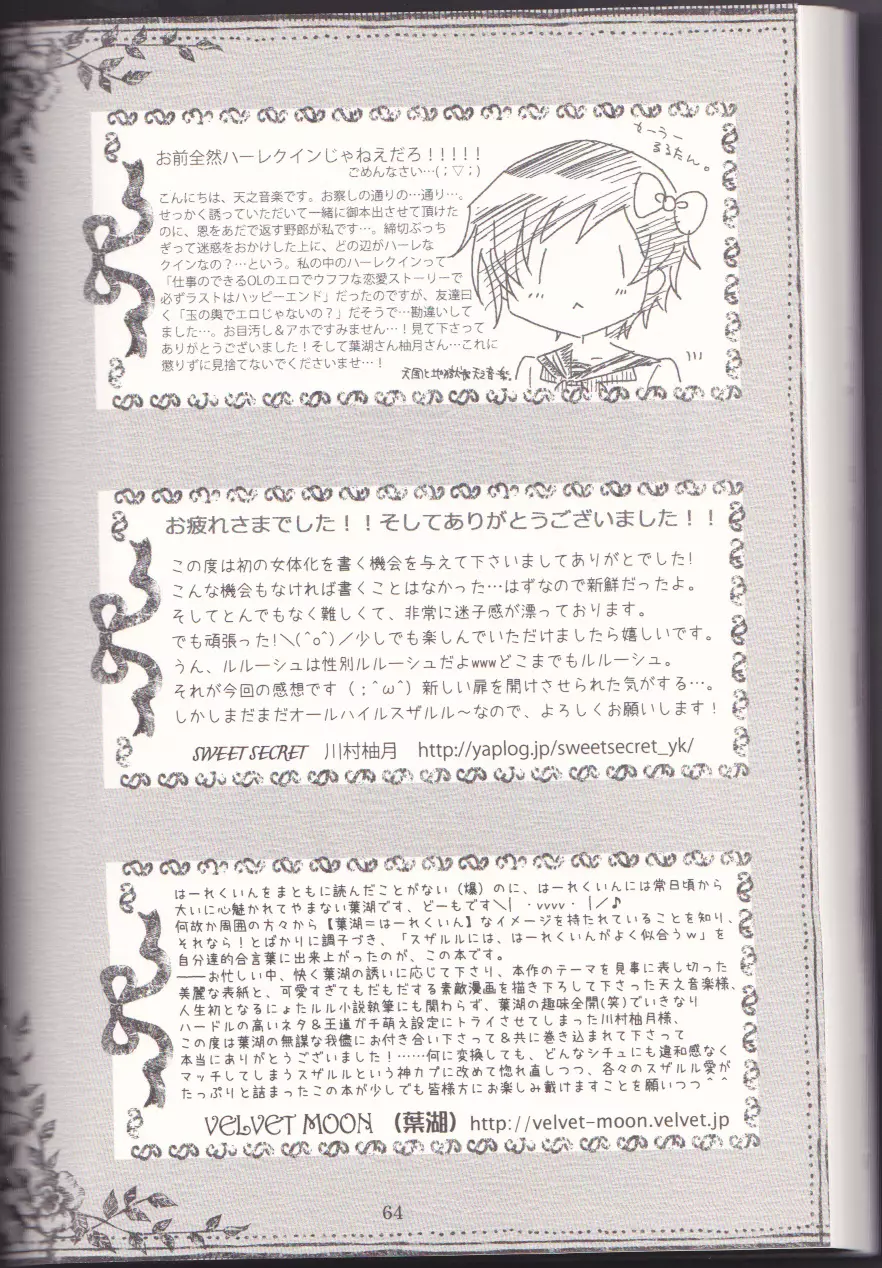 お前全然ハーレクインじゃねえだろ！！！！！
ごめんなさい…(；▽；)
こんにちは、天之音楽です。お察しの通りの…通り…。
せっかく誘っていただいて一緒に御本出させて頂けた
のに、恩をあだで返す野郎が私です…。締切ぶっち
ぎって迷惑をおかけした上に、どの辺がハーレ
クインなの？…という。私の中のハーレクインって
「仕事のできるOLのエロでウフフな恋愛ストーリーで
必ずラストはハッピーエンド」だったのですが、友達曰
く「玉の輿でエロじゃないの？」だそうで…勘違いして
ました…。お目汚し＆アホですみません…！見て下さって
ありがとうございました！そして葉湖さん柚月さん…これに
懲りずに見捨てないでくださいませ…！
るるたん。
天国と地獄 天之音楽
お疲れさまでした！！そしてありがとうございました！！
この度は初の女体化を書く機会を与えて下さいましてありがとでした!
こんな機会もなければ書くことはなかった…はずなので新鮮だったよ。
そしてとんでもなく難しくて、非常に迷子感が漂っております。
でも頑張った!＼(^o^)／少しでも楽しんでいただけましたら嬉しいです。
うん、ルルーシュは性別ルルーシュだよwwwどこまでもルルーシュ。
それが今回の感想です（；^ω^）新しい扉を開けさせられた気がする…。
しかしまだまだオールハイルスザルル〜なので、よろしくお願いします！
SWEET SECRET 川村柚月 http://yaplog.jp/sweetsecret_yk/
はーれくいんをまともに読んだことがない（爆）のに、はーれくいんには常日頃から
大いに心魅かれてやまない葉湖です、どーもです＼|　・vvvv・　|／♪
何故か周囲の方々から【葉湖＝はーれくいん】なイメージを持たれていることを知り、
それなら！とばかりに調子づき、「スザルルには、はーれくいんがよく似合うｗ」を
自分達的合言葉に出来上がったのが、この本です。
――お忙しい中、快く葉湖の誘いに応じて下さり、本作のテーマを見事に表し切った
美麗な表紙と、可愛すぎてもだもだする素敵漫画を描き下ろして下さった天之音楽様、
人生初となるにょたルル小説執筆にも関わらず、葉湖の趣味全開(笑)でいきなり
ハードルの高いネタ＆王道ガチ萌え設定にトライさせてしまった川村柚月様、
この度は葉湖の無謀な我儘にお付き合い下さって＆共に巻き込まれて下さって
本当にありがとうございました！……何に変換しても、どんなシチュにも違和感なく
マッチしてしまうスザルルという神カプに改めて惚れ直しつつ、各々のスザルル愛が
たっぷりと詰まったこの本が少しでも皆様方にお楽しみ戴けますことを願いつつ＾＾
VELVET MOON （葉湖） http://velvet-moon.velvet.jp
64